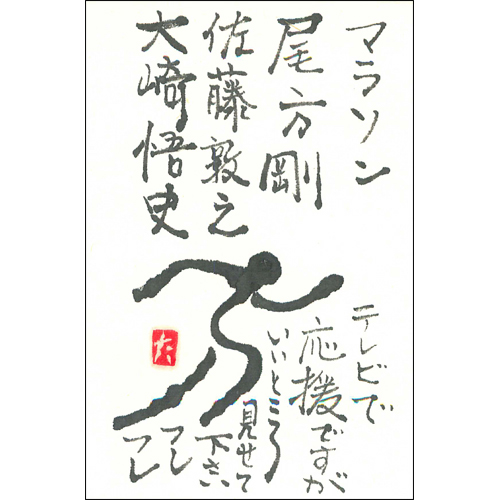 マラソン
尾方剛
佐藤敦之
大崎悟史
テレビで
応援ですが
いいところ
見せて
下さい
フレ
フレ
た